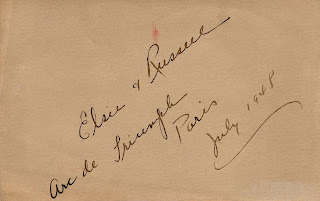 Elsie & Russell
Arc de Triumph
Paris
July 1948